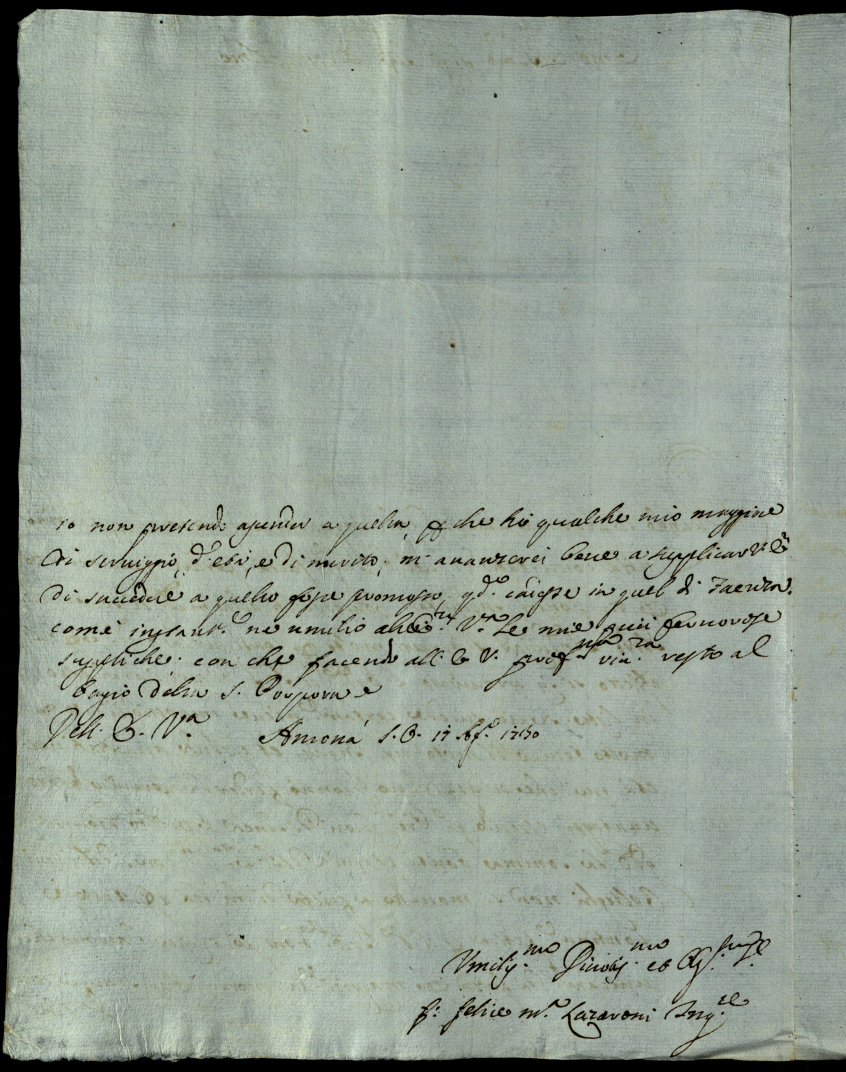 io non pretendo ascender a quella, p che hò qualche mio maggiore
di servigio, d'età, e di merito, m'avanzerei bene a supplicar V. E.
di succedere a quello fosse promosso, qdo. cadesse in quel di Faenza.
come instantmte. ne umilio all' Va. Le mie quivi fervorose
suppliche. con che facendo all' E. V. profma. riva. resto al
bagio della S. Porpora e
Dell. E. Va. Ancona S. O. 1730
Umilissmo Divotissmo ed
f. Felice Ma. Lazaroni Inqre.